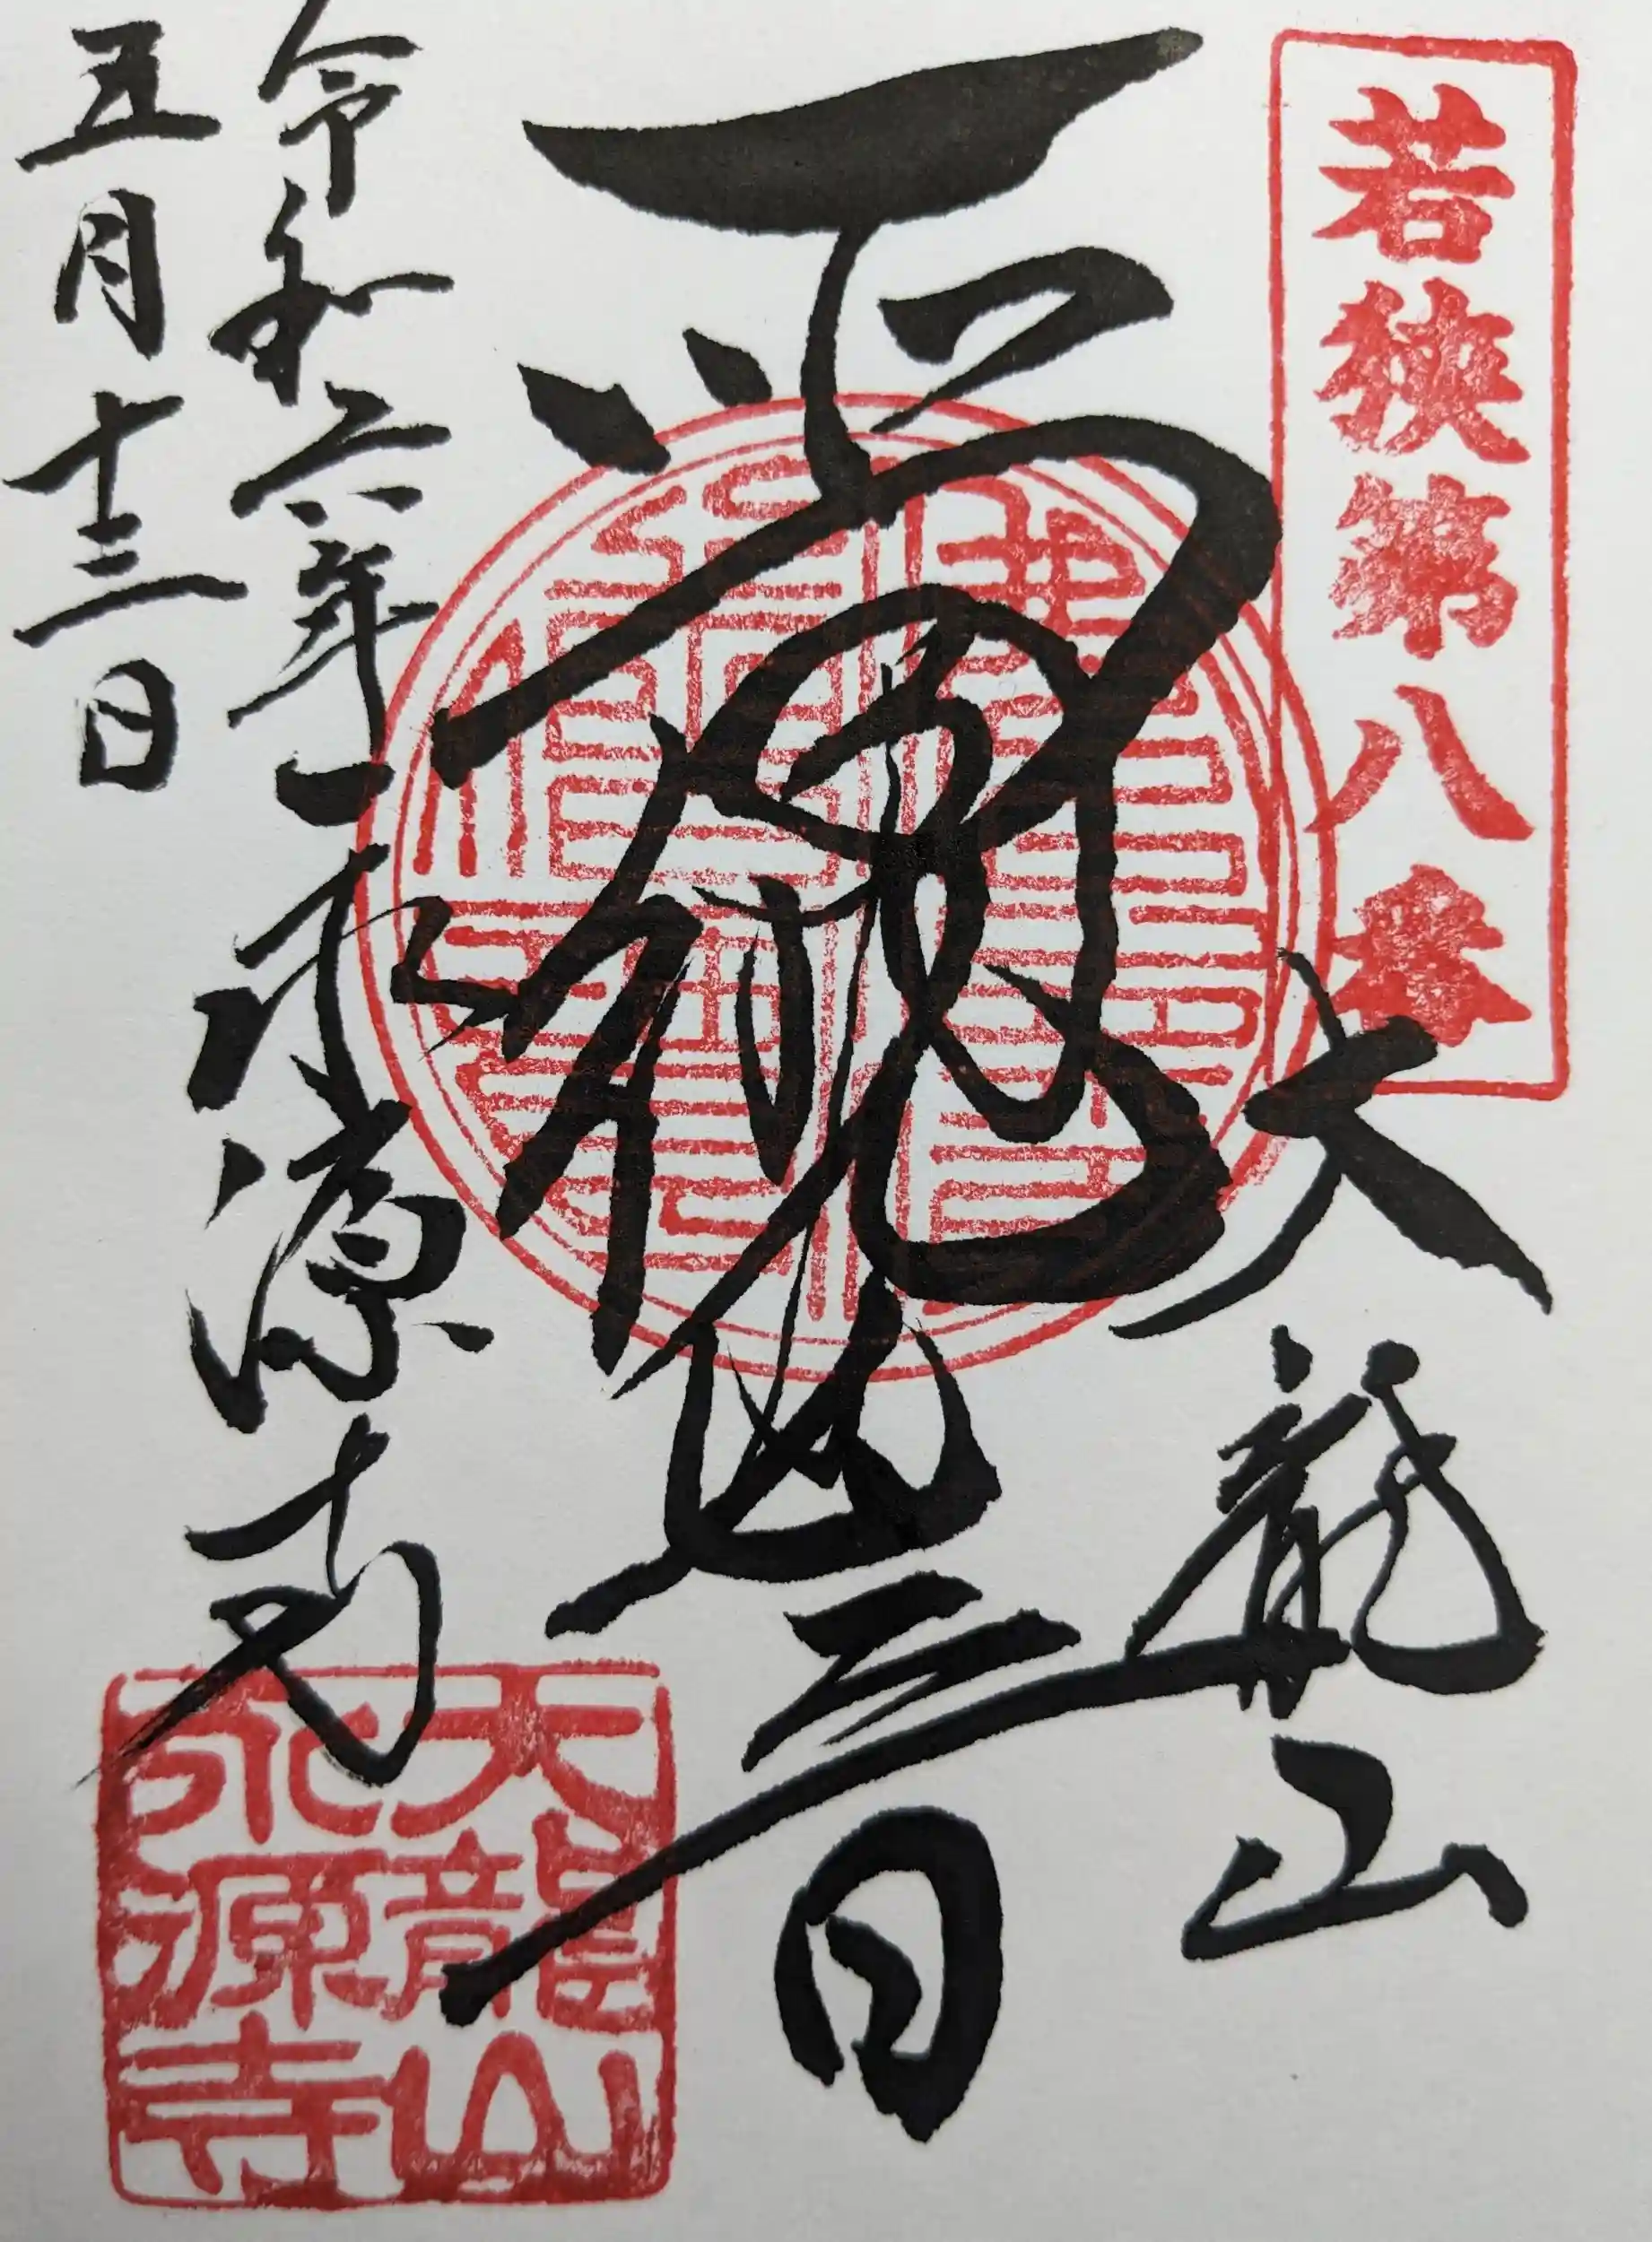 若狹第八番
大龍山
正観世音
令和六年
五月十三日
永源寺
大龍山
永源寺